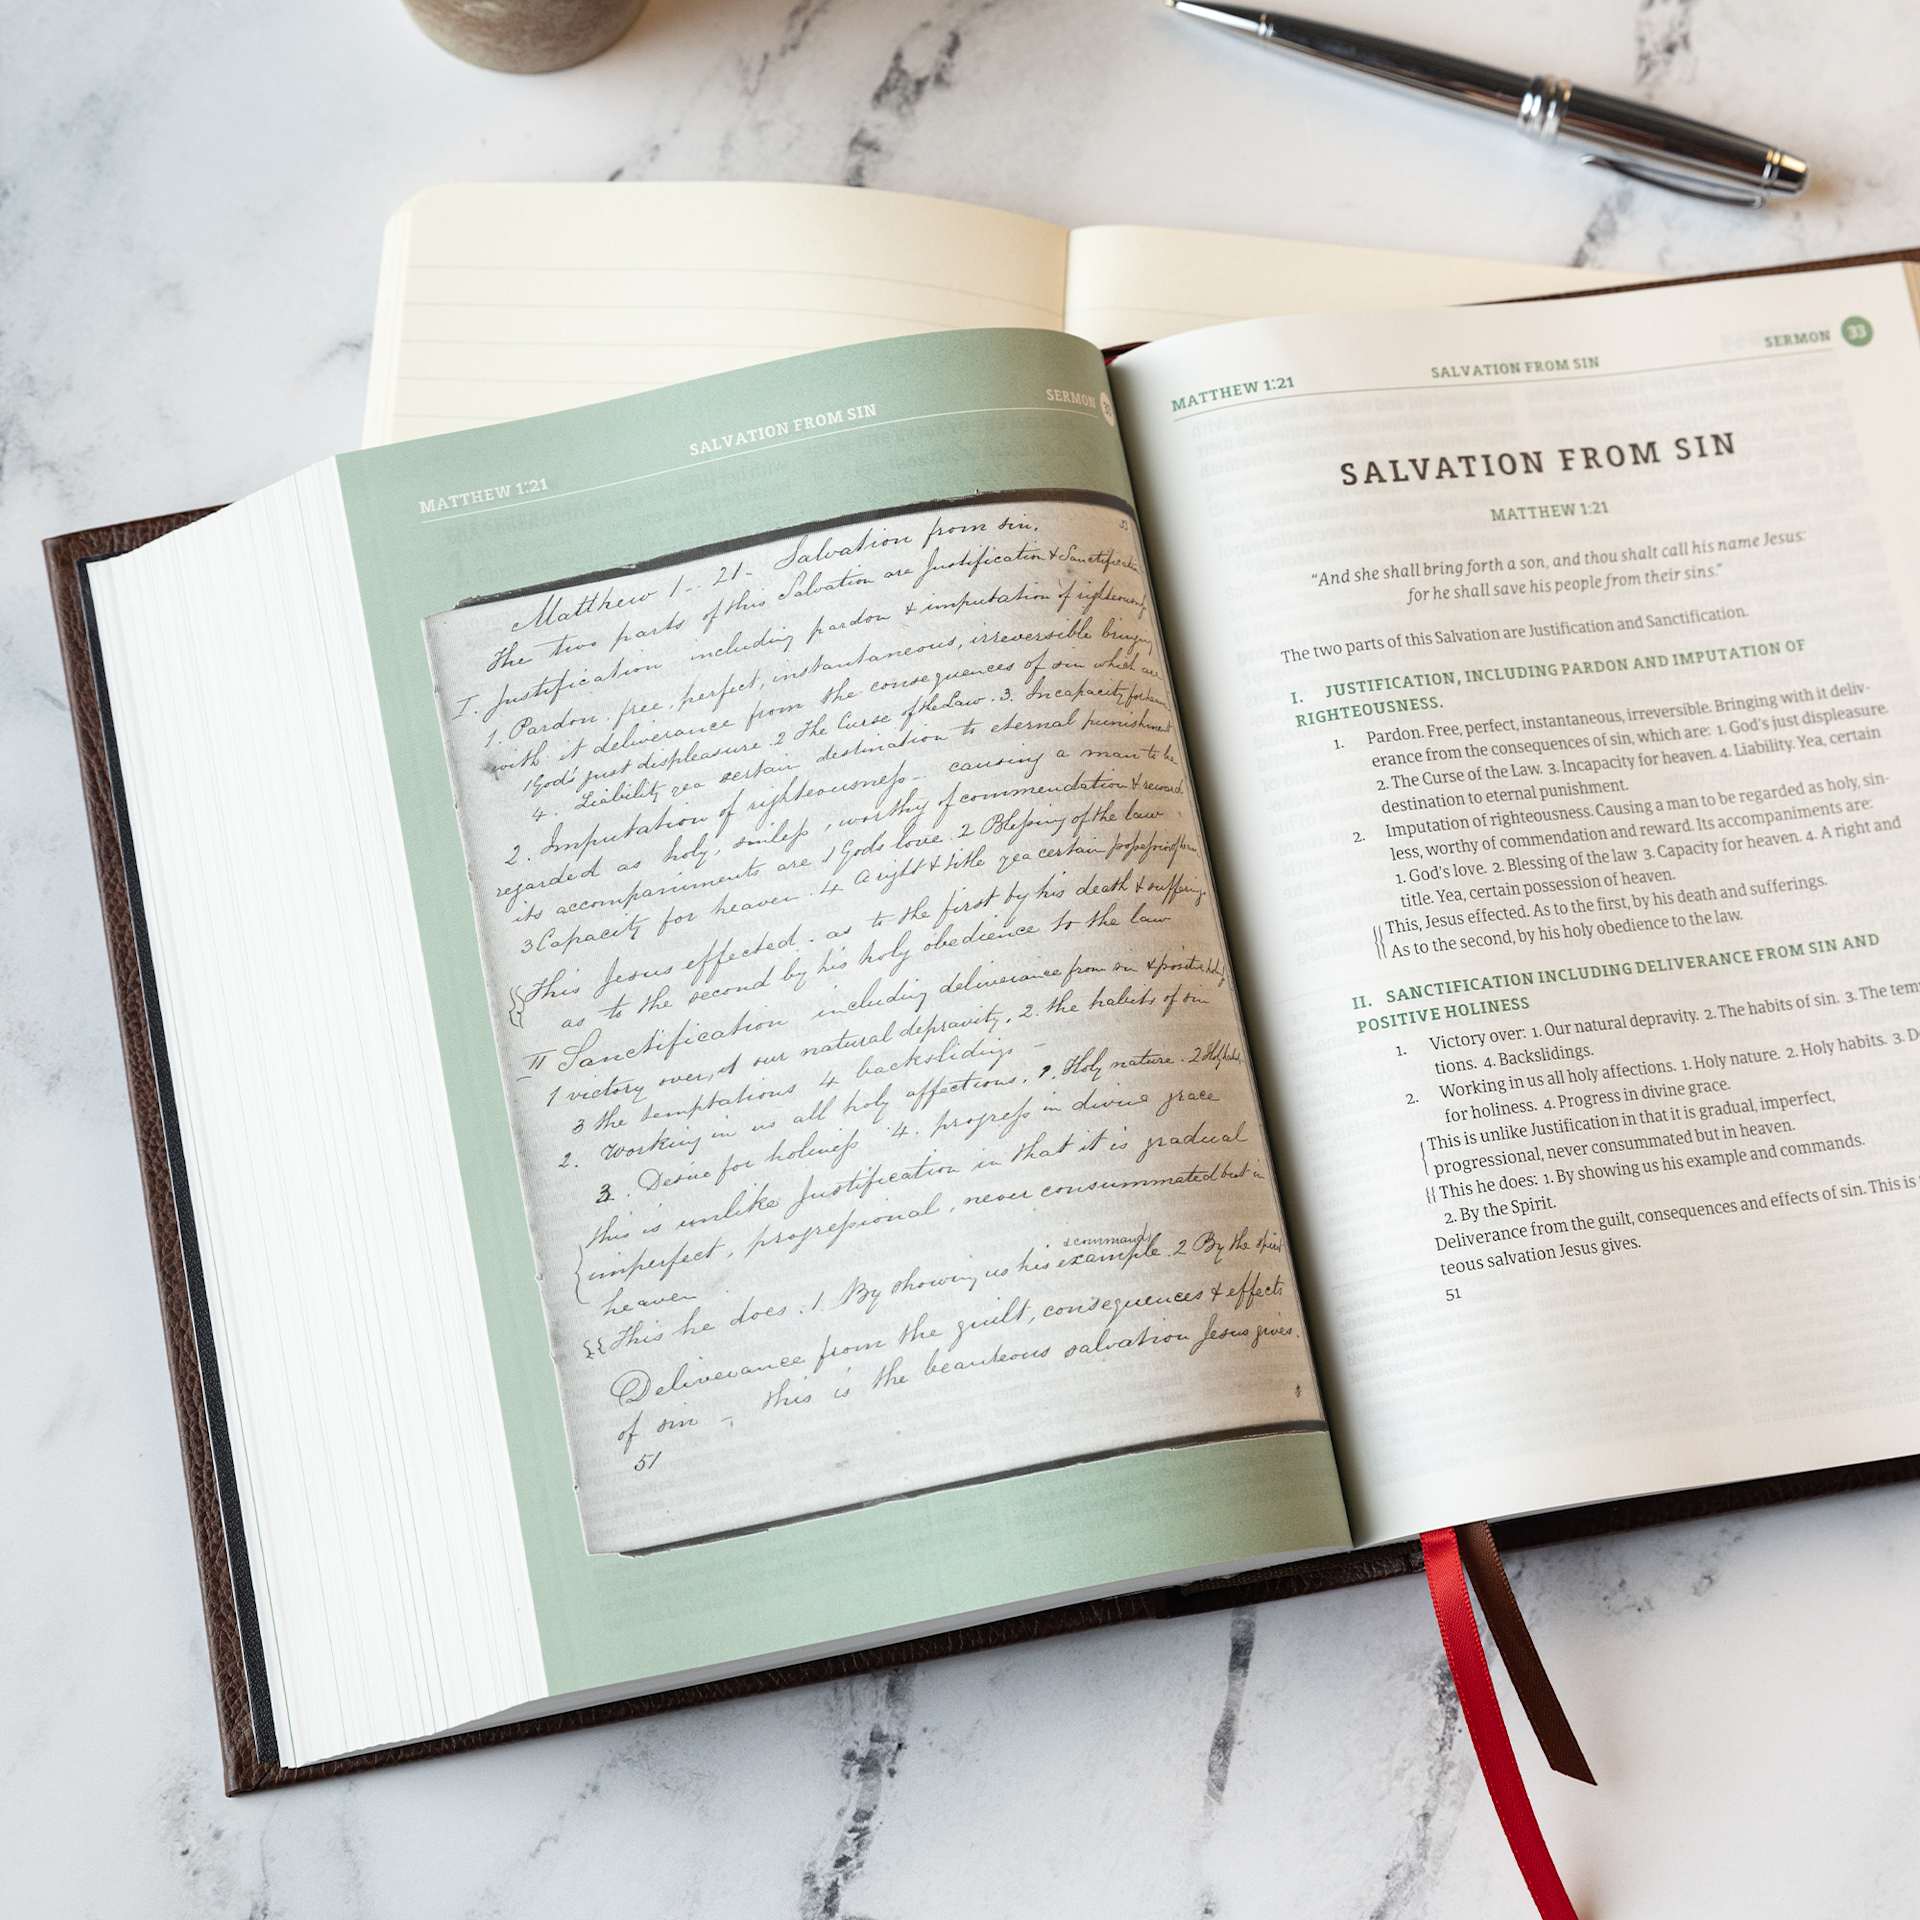 MATTHEW 1:21 SALVATION FROM SIN SERMON
Matthew 1.. 21- Salvation from sin.
The two parts of this Salvation are Justification & Sanctification
I. Justification including pardon & imputation of righteousness
1. Pardon. free, perfect, instantaneous, irreversible bringing
with it deliverance from the consequences of sin which are
1 God's just displeasure. 2 The Curse of the Law. 3. Incapacity for heaven.
4. Liability yea certain destination to eternal punishment
2. Imputation of righteousness - causing a man to be
regarded as holy, sinless, worthy of commendation & reward
its accompaniments are 1 Gods love. 2 Blessing of the law
3 Capacity for heaven. 4 A right & title yea certain possession of
{{This Jesus effected. as to the first by his death & sufferings
as to the second by his holy obedience to the law
II Sanctification including deliverance from sin & positive
1 victory over, 1 our natural depravity, 2. the habits of sin
3 the temptations 4 backslidings -
2. Working in us all holy affections. 1. Holy nature. 2 Holy
3. Desire for holiness 4. progress in divine grace
{this is unlike Justification in that it is gradual
imperfect, progressional, never consummated but in
heaven
& commands
{{This he does. 1. By showing us his example. 2 By the spirit
Deliverance from the guilt, consequences & effects
of sin - this is the beauteous salvation Jesus gives.
51
MATTHEW 1:21 SALVATION FROM SIN SERMON 33
SALVATION FROM SIN
MATTHEW 1:21
“And she shall bring forth a son, and thou shalt call his name Jesus:
for he shall save his people from their sins.”
The two parts of this Salvation are Justification and Sanctification.
I. JUSTIFICATION, INCLUDING PARDON AND IMPUTATION OF
RIGHTEOUSNESS.
1. Pardon. Free, perfect, instantaneous, irreversible. Bringing with it deliv-
erance from the consequences of sin, which are: 1. God's just displeasure.
2. The Curse of the Law. 3. Incapacity for heaven. 4. Liability. Yea, certain
destination to eternal punishment.
2. Imputation of righteousness. Causing a man to be regarded as holy, sin-
less, worthy of commendation and reward. Its accompaniments are:
1. God's love. 2. Blessing of the law 3. Capacity for heaven. 4. A right and
title. Yea, certain possession of heaven.
{{This, Jesus effected. As to the first, by his death and sufferings.
As to the second, by his holy obedience to the law.
II. SANCTIFICATION INCLUDING DELIVERANCE FROM SIN AND
POSITIVE HOLINESS
1. Victory over: 1. Our natural depravity. 2. The habits of sin. 3. The temp
tions. 4. Backslidings.
2. Working in us all holy affections. 1. Holy nature. 2. Holy habits. 3. D
for holiness. 4. Progress in divine grace.
{This is unlike Justification in that it is gradual, imperfect,
progressional, never consummated but in heaven.
{{This he does: 1. By showing us his example and commands.
2. By the Spirit.
Deliverance from the guilt, consequences and effects of sin. This is
teous salvation Jesus gives.
51